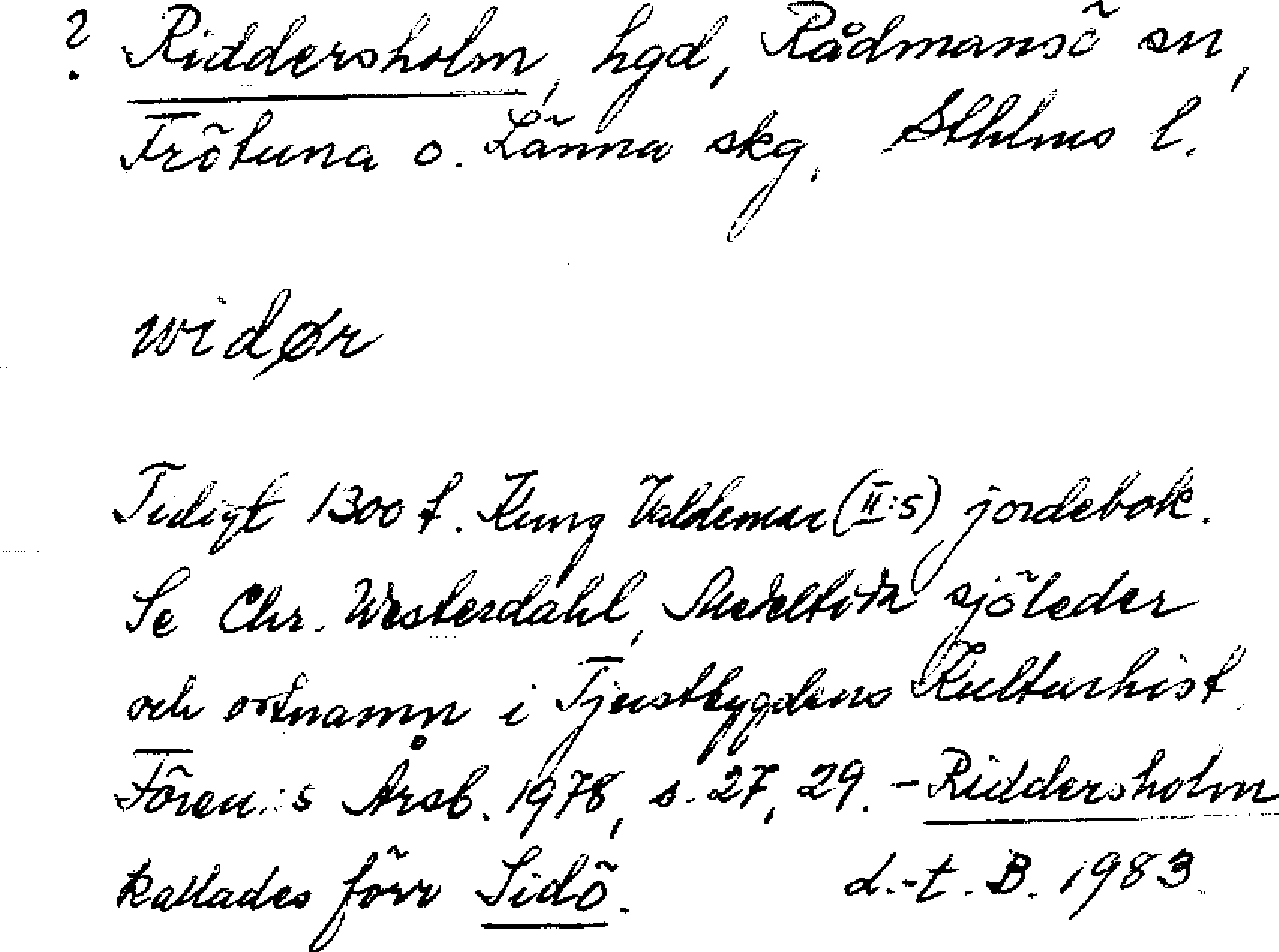 ? Riddersholm, hgd, Rådmansö sn,
Frötuna o. Länna skg. Sthlms l.
widør
Tidigt 1300 t. Kung Valdemar (II:s) jordebok.
Se Chr. Westerdahl, Medeltida sjöleder
och ortnamn i Tjustbygdens Kulturhist.
Fören:s Årsb. 1978, s. 27, 29. - Riddersholm
kallades förr Sidö. d.-t. B. 1983